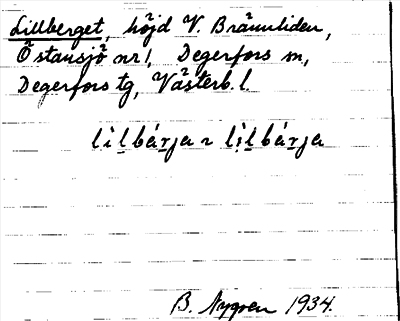 Lillberget, höjd V. Brännliden,
Östansjö nr 1, Degerfors sn,
Degerfors tg, Västerb. l.
lìḷbáṛja ~ lìḷbáṛja
B. Nygren 1934.